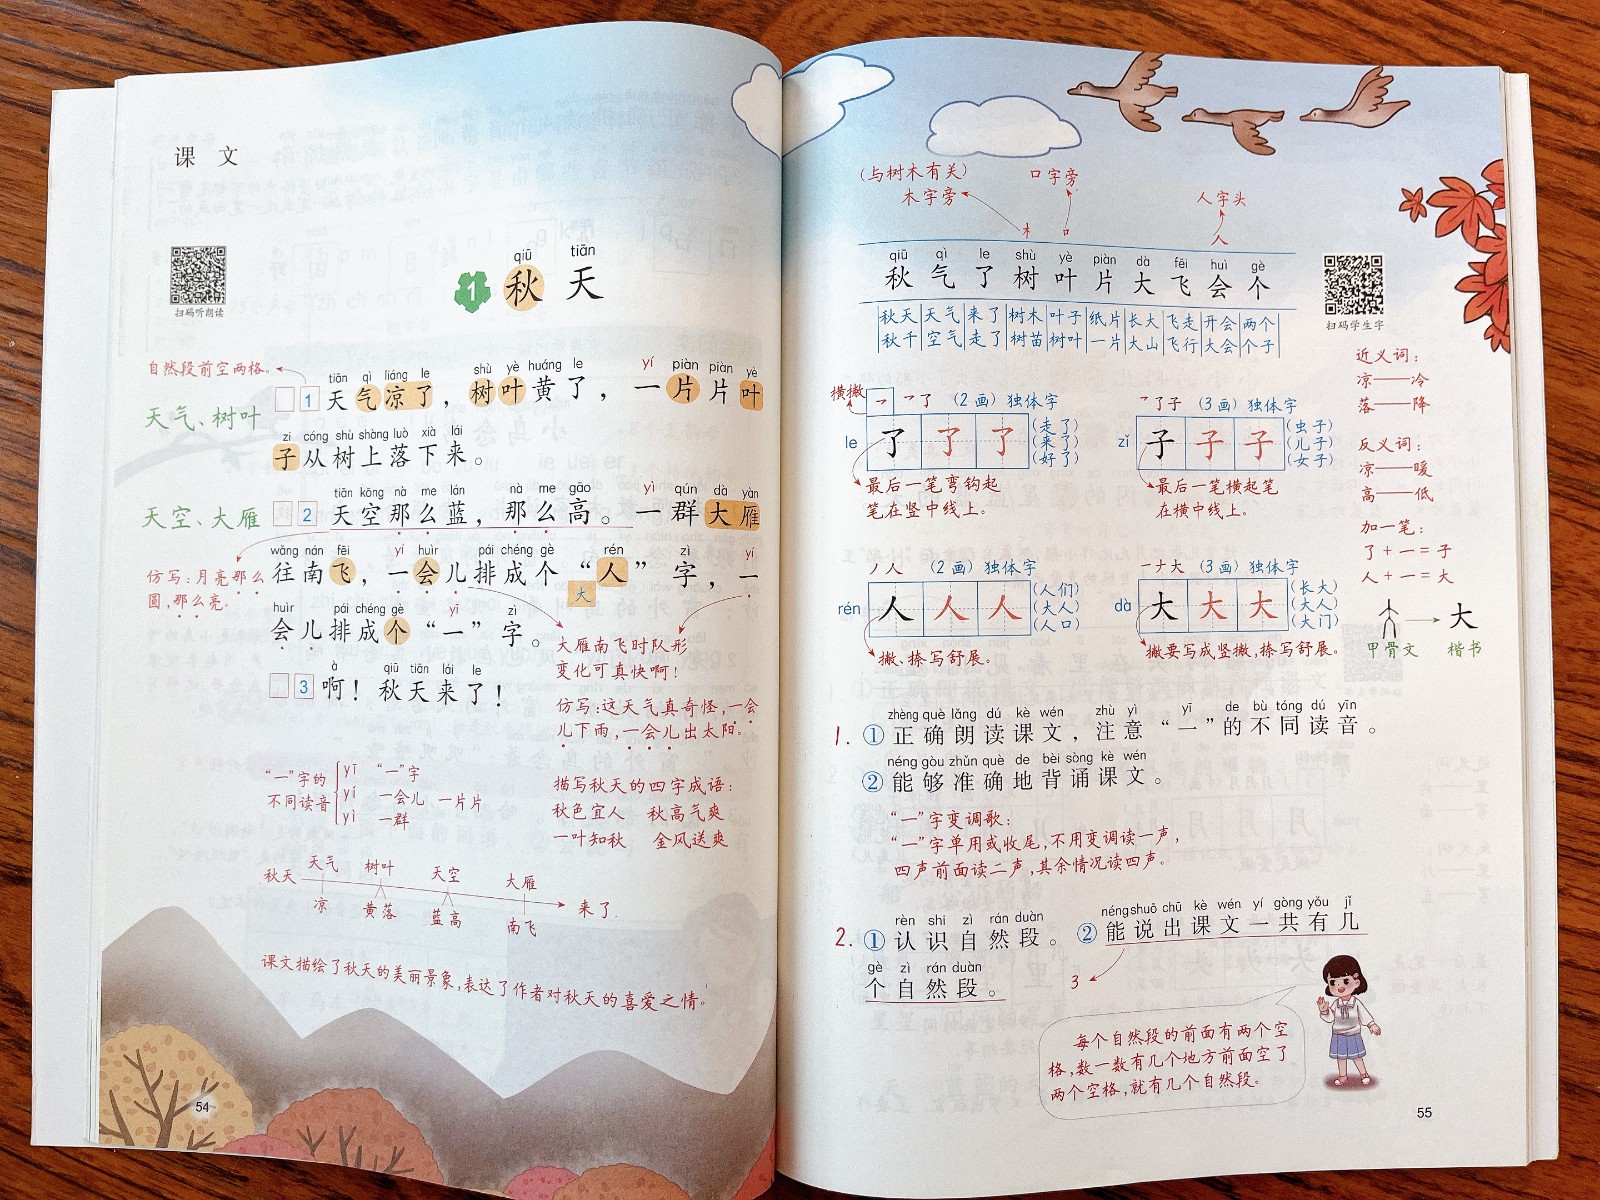 课 文
qiū tiān
1 秋 天
扫码听朗读
自然段前空两格。
tiān qì liáng le shù yè huáng le yí piàn piàn yè
1 天气凉了，树叶黄了，一片片叶
天气、树叶
zi cóng shù shàng luò xià lái
子从树上落下来。
tiān kōng nà me lán nà me gāo yì qún dà yàn
天空、大雁
2 天空那么蓝，那么高。一群大雁
wǎng nán fēi yí huìr pái chéng gè rén zì yí
往南飞，一会儿排成个“人”字，一
大
仿写：月亮那么
圆，那么亮。
huìr pái chéng gè yī zì
会儿排成个“一”字。
大雁南飞时队形
变化可真快啊！
à qiū tiān lái le
3 啊！秋天来了！
仿写：这天气真奇怪，一会
儿下雨，一会儿出太阳。
“一”字的
不同读音
yī “一”字
yí 一会儿 一片片
yì 一群
描写秋天的四字成语：
秋色宜人 秋高气爽
一叶知秋 金风送爽
天气 树叶 天空 大雁
秋天 来了
凉 黄落 蓝高 南飞
课文描绘了秋天的美丽景象，表达了作者对秋天的喜爱之情。
54
（与树木有关）
木字旁
口字旁
人字头
木 口 人
qiū qì le shù yè piàn dà fēi huì gè
秋气了树叶片大飞会个
秋天 天气 来了 树木 叶子 纸片 长大 飞走 开会 两个
秋千 空气 走了 树苗 树叶 一片 大山 飞行 大会 个子
扫码学生字
近义词：
凉——冷
落——降
反义词：
凉——暖
高——低
加一笔：
了+一=子
人+一=大
甲骨文 大 楷书
横撇
㇇了 （2画）独体字
le 了 了 了
（走了）
（来了）
（好了）
最后一笔弯钩起
笔在竖中线上。
㇇了子 （3画）独体字
zǐ 子 子 子
（虫子）
（儿子）
（女子）
最后一笔横起笔
在横中线上。
丿人 （2画）独体字
rén 人 人 人
（人们）
（大人）
（人口）
撇、捺写舒展。
一ナ大 （3画）独体字
dà 大 大 大
（长大）
（大人）
（大门）
撇要写成竖撇，捺写舒展。
zhèng què lǎng dú kè wén zhù yì yī de bù tóng dú yīn
1. ①正确朗读课文，注意“一”的不同读音。
néng gòu zhǔn què de bèi sòng kè wén
②能够准确地背诵课文。
“一”字变调歌：
“一”字单用或收尾，不用变调读一声，
四声前面读二声，其余情况读四声。
rèn shi zì rán duàn néng shuō chū kè wén yí gòng yǒu jǐ
2. ①认识自然段。②能说出课文一共有几
gè zì rán duàn
个自然段。
3
每个自然段的前面有两个空
格，数一数有几个地方前面空了
两个空格，就有几个自然段。
55